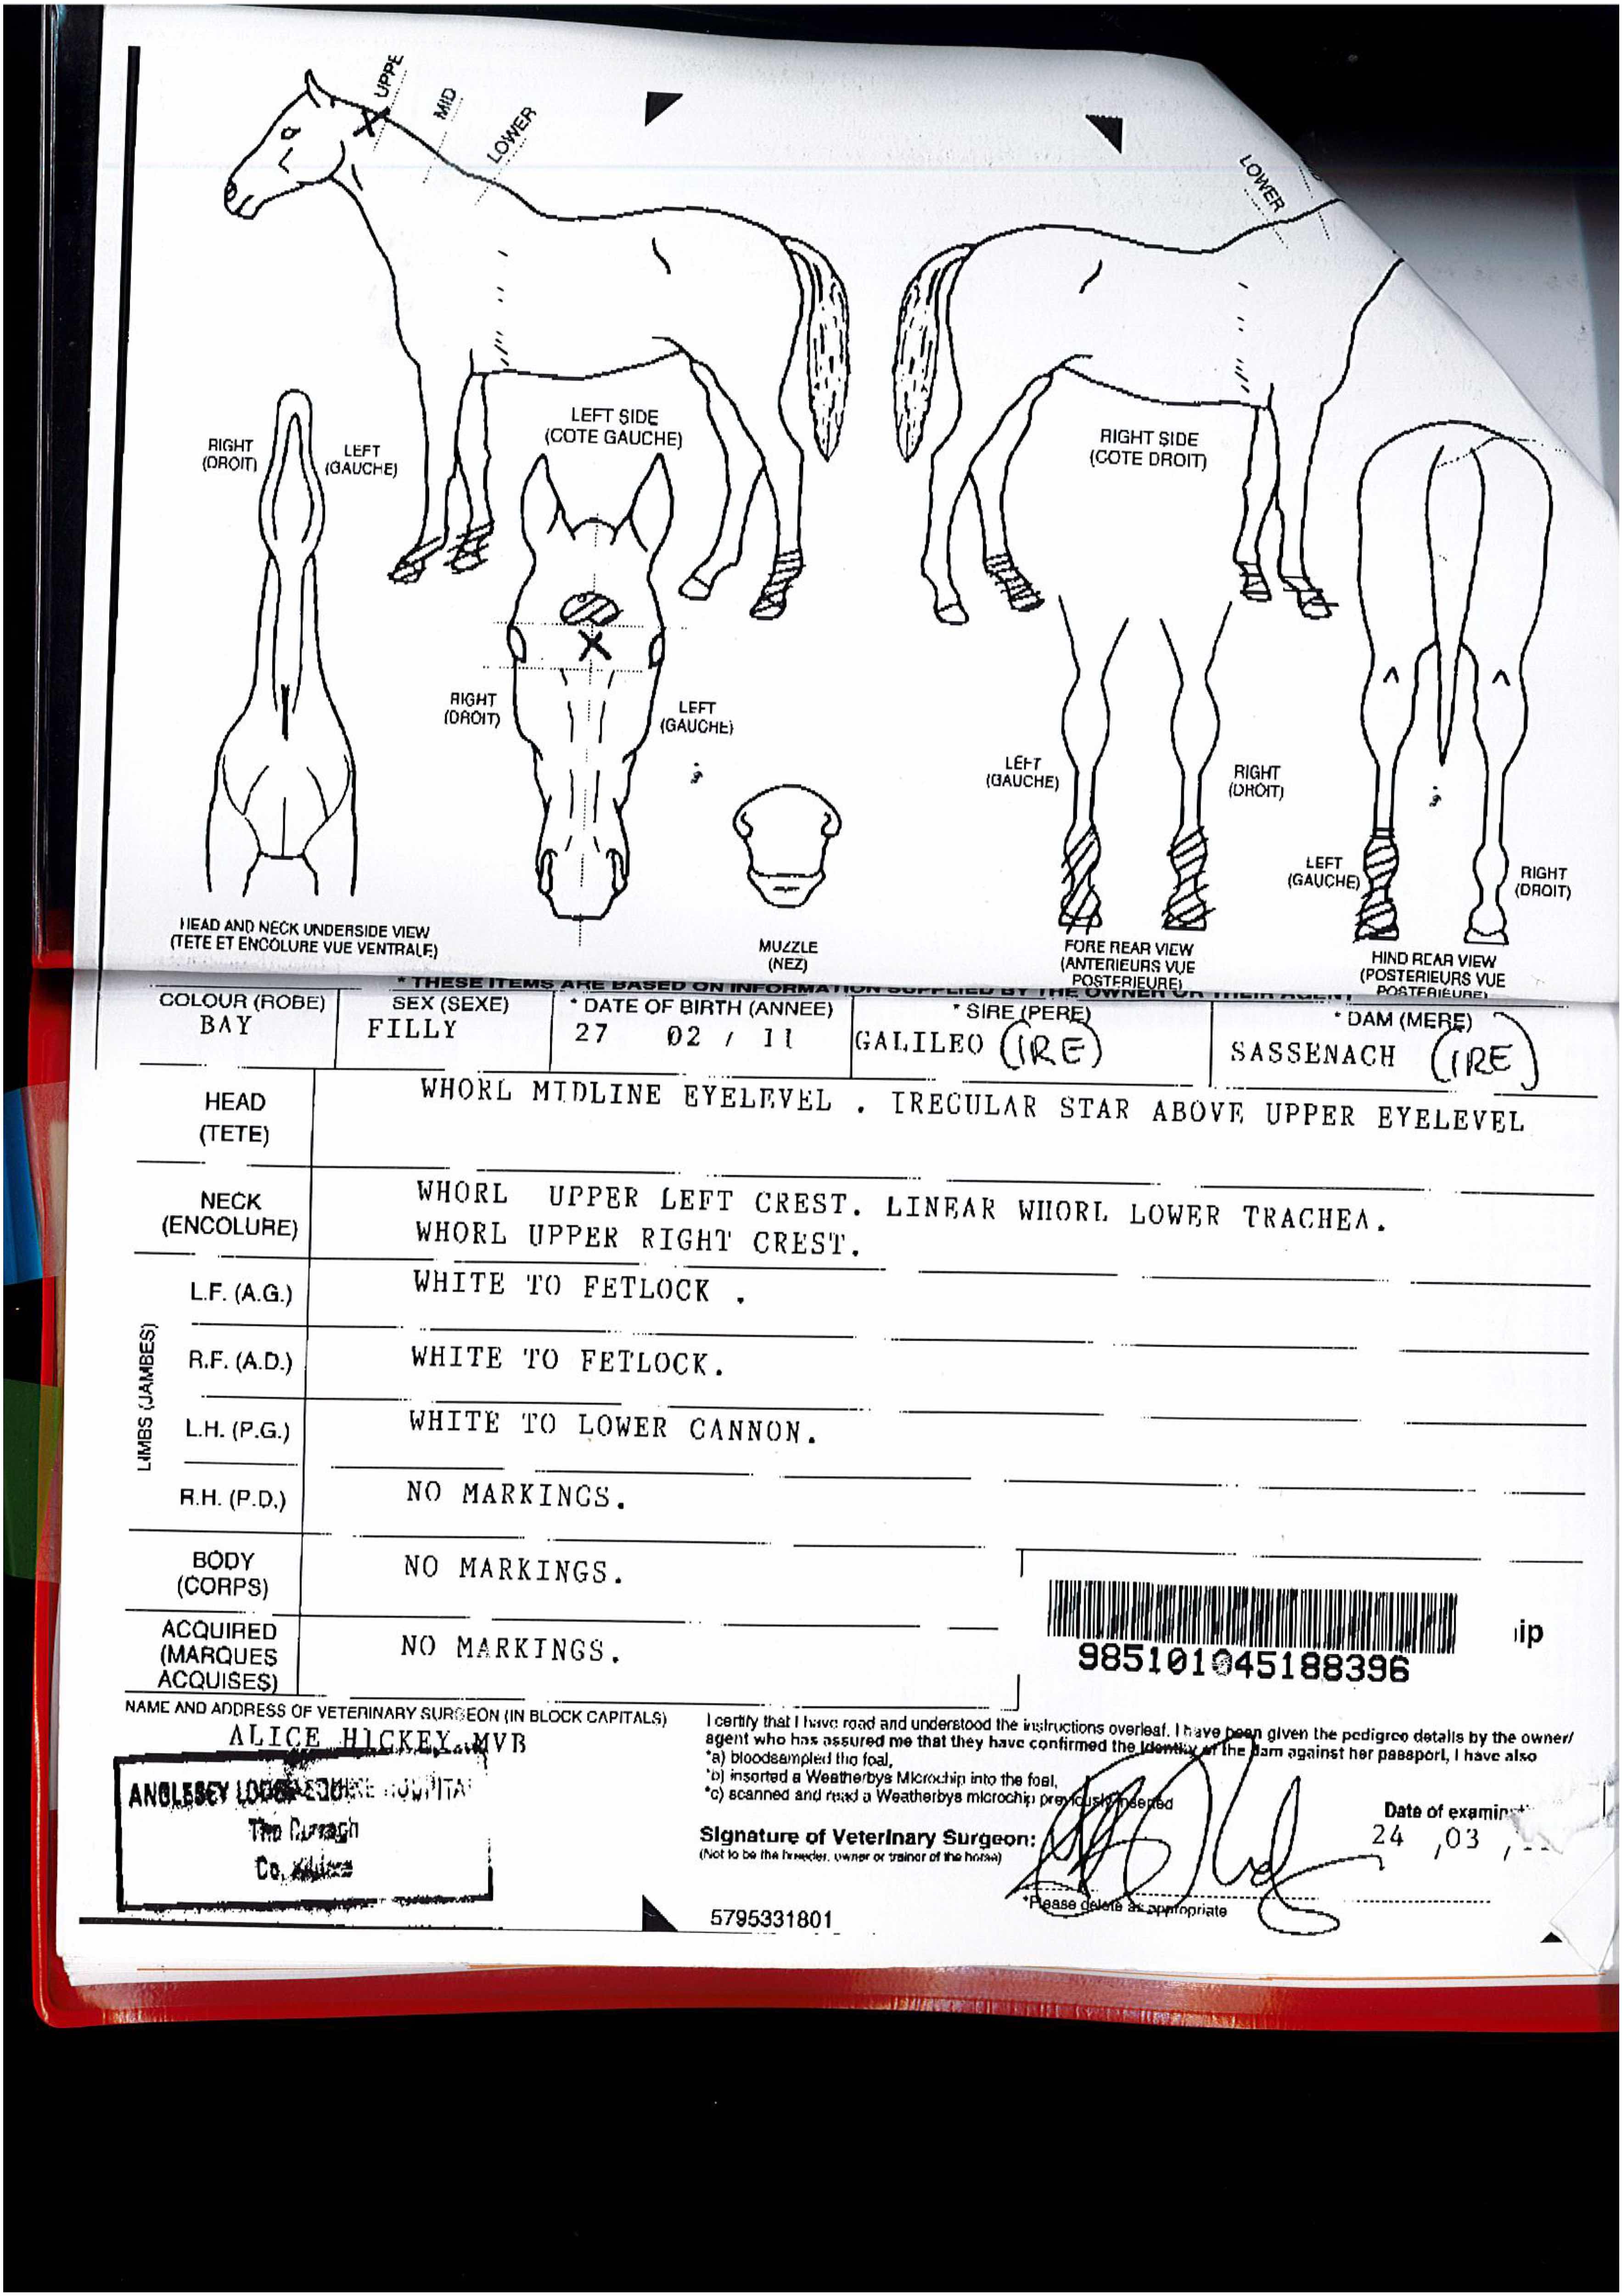 UPPE
MID
LOWER
LOWER
LEFT SIDE
(COTE GAUCHE)
RIGHT SIDE
(COTE DROIT)
RIGHT
(DROIT)
LEFT
(GAUCHE)
RIGHT
(DROIT)
LEFT
(GAUCHE)
LEFT
(GAUCHE)
RIGHT
(DROIT)
LEFT
(GAUCHE)
RIGHT
(DROIT)
HEAD AND NECK UNDERSIDE VIEW
(TETE ET ENCOLURE VUE VENTRALE)
MUZZLE
(NEZ)
FORE REAR VIEW
(ANTERIEURS VUE
POSTERIEURE)
HIND REAR VIEW
(POSTERIEURS VUE
POSTERIEURE)
* THESE ITEMS ARE BASED ON INFORMATION SUPPLIED BY THE OWNER OR THEIR AGENT
COLOUR (ROBE) SEX (SEXE) * DATE OF BIRTH (ANNEE) * SIRE (PERE) * DAM (MERE)
BAY FILLY 27 02 / 11 GALILEO (IRE) SASSENACH (IRE)
HEAD
(TETE)
WHORL MIDLINE EYELEVEL . IREGULAR STAR ABOVE UPPER EYELEVEL
NECK
(ENCOLURE)
WHORL UPPER LEFT CREST. LINEAR WHORL LOWER TRACHEA.
WHORL UPPER RIGHT CREST.
LIMBS (JAMBES)
L.F. (A.G.) WHITE TO FETLOCK .
R.F. (A.D.) WHITE TO FETLOCK.
L.H. (P.G.) WHITE TO LOWER CANNON.
R.H. (P.D.) NO MARKINGS.
BODY
(CORPS)
NO MARKINGS.
ACQUIRED
(MARQUES
ACQUISES)
NO MARKINGS.
ip
985101045188396
NAME AND ADDRESS OF VETERINARY SURGEON (IN BLOCK CAPITALS)
ALICE HICKEY MVB
ANGLESEY LODGE EQUINE HOSPITAL
The Curragh
Co. Kildare
I certify that I have read and understood the instructions overleaf. I have been given the pedigree details by the owner/
agent who has assured me that they have confirmed the identity of the dam against her passport, I have also
*a) bloodsampled the foal,
*b) inserted a Weatherbys Microchip into the foal,
*c) scanned and read a Weatherbys microchip previously inserted
Signature of Veterinary Surgeon:
(Not to be the breeder, owner or trainer of the horse)
Date of examin
24 ,03 ,
*Please delete as appropriate
5795331801